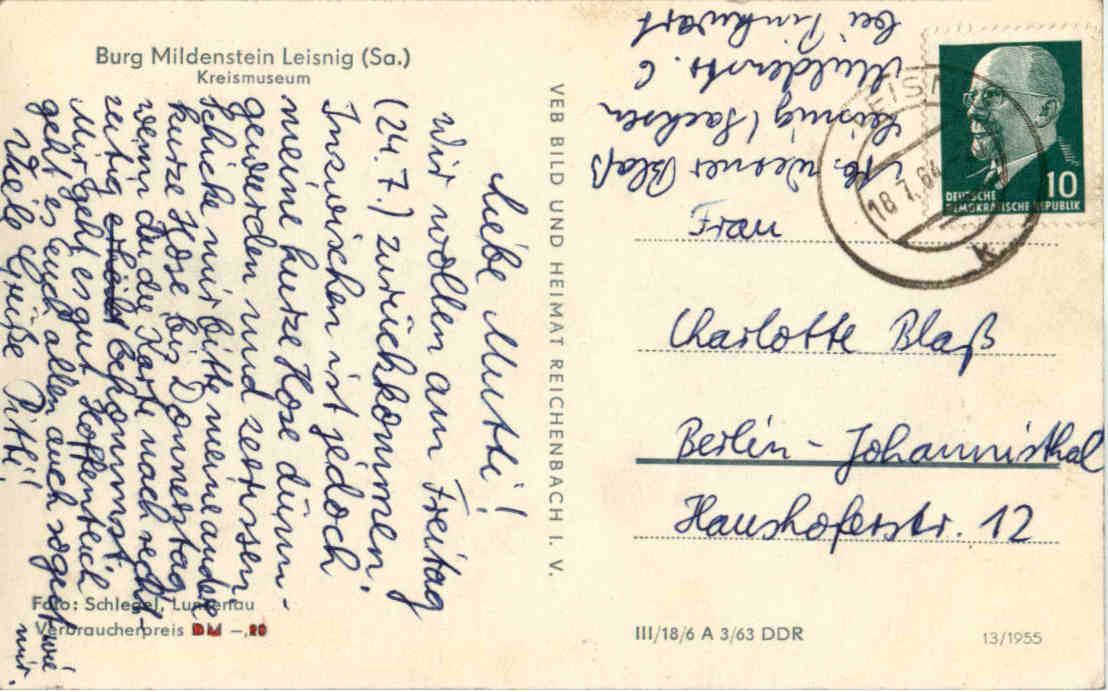 Burg Mildenstein Leisnig (Sa.)
Kreismuseum
Liebe Mutti!
Wir wollen am Freitag
(24. 7.) zurückkommen.
Inzwischen ist jedoch
meine kurze Hose dünn-
geworden und zerrissen
Schicke mir bitte meine andere
kurze Hose bis Donnerstag,
wenn du die Karte noch recht-
zeitig bekommst.
Mir geht es gut. Hoffentlich
geht es euch allen auch so gut wie mir.
Viele Grüße Pitti
Foto: Schlegel, Lunzenau
Verbraucherpreis DM –,20
VEB BILD UND HEIMAT REICHENBACH I. V.
Abs. Werner Blaß
Leisnig / Sachsen
Muldenstr. 6
bei
LEISNIG
18.7.64
K
DEUTSCHE
DEMOKRATISCHE REPUBLIK
10
Frau
Charlotte Blaß
Berlin - Johannisthal
Haushoferstr. 12
III/18/6 A 3/63 DDR
13/1955